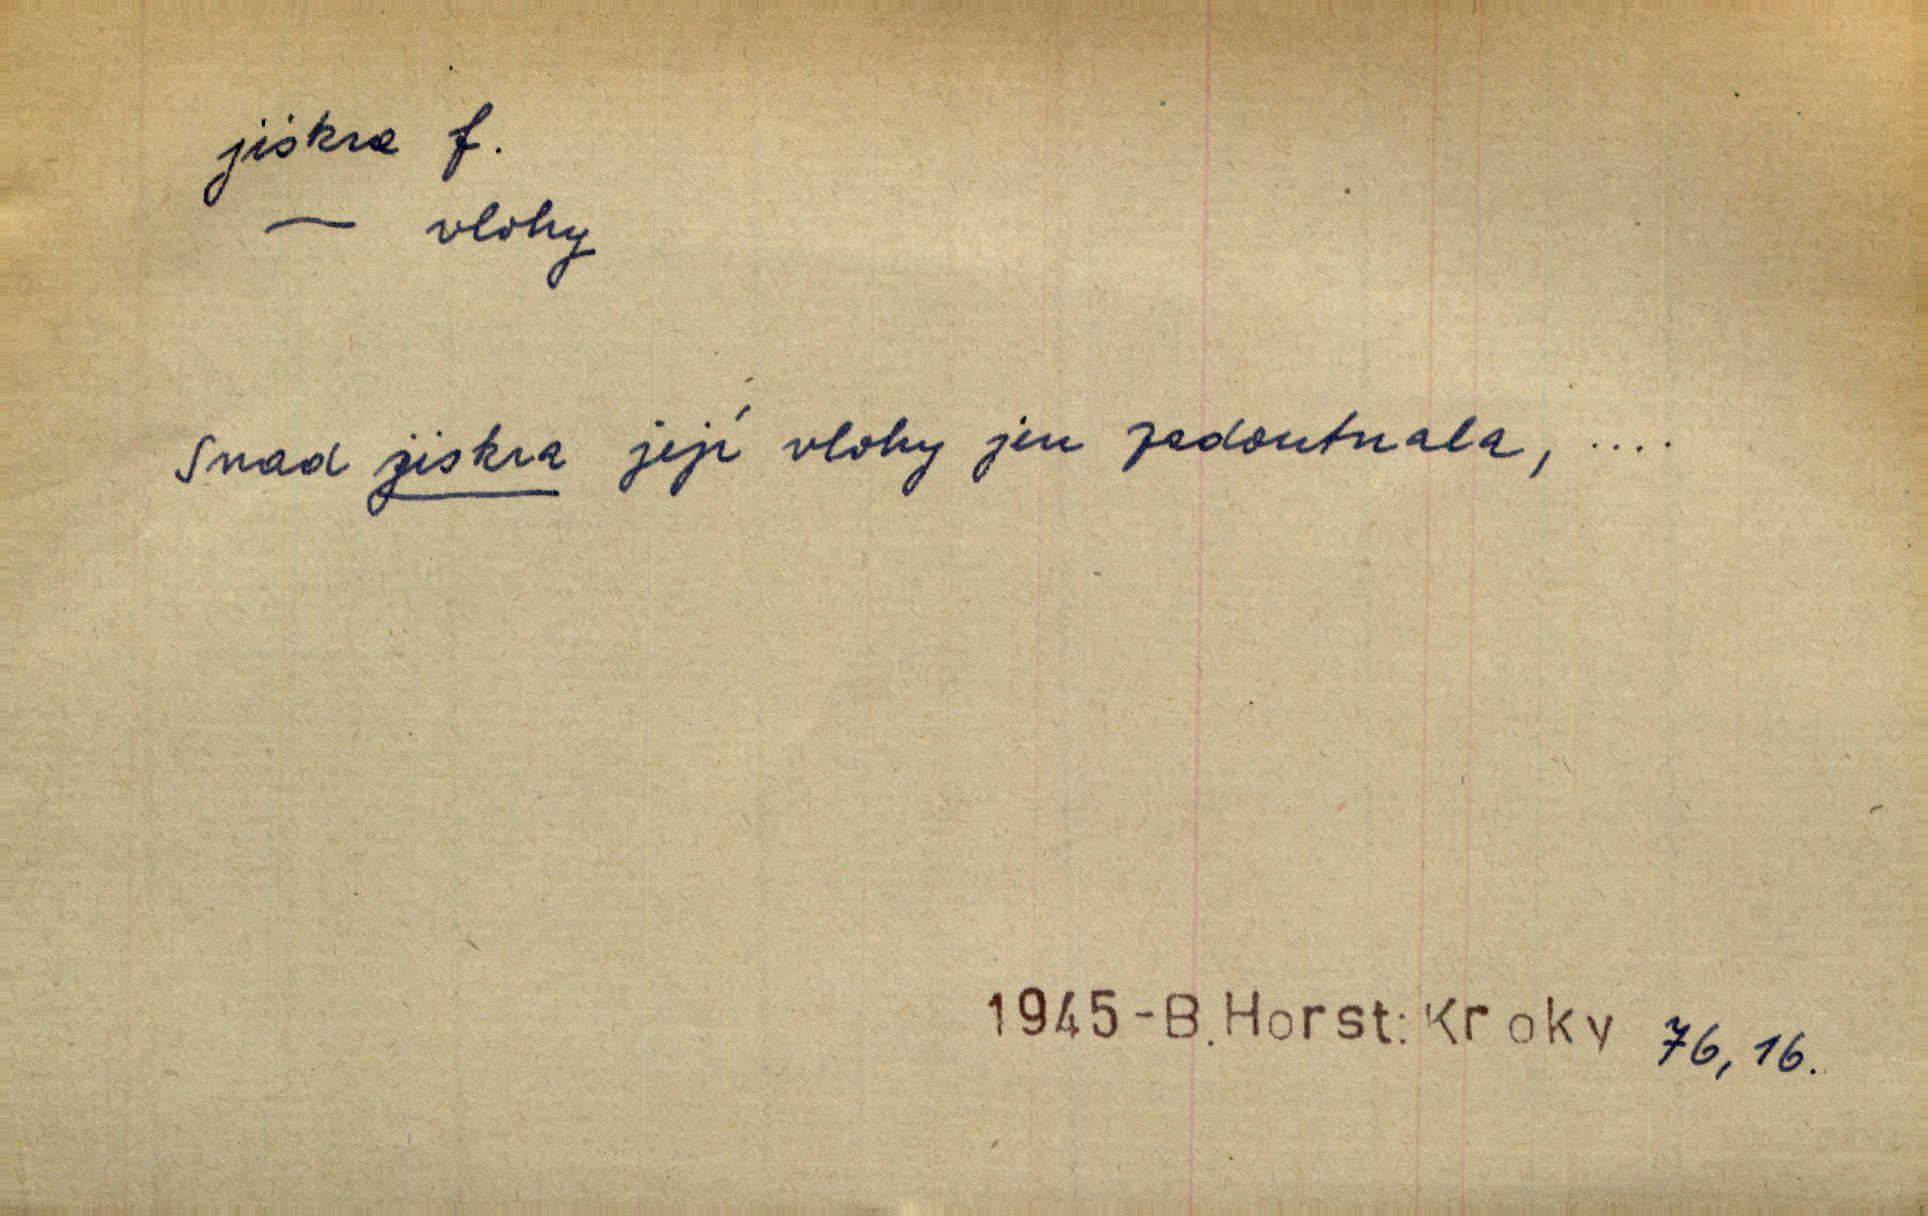 jiskra f.
— vlohy
Snad jiskra její vlohy jen zadoutnala, ....
1945-B.Horst: Kroky 76, 16.